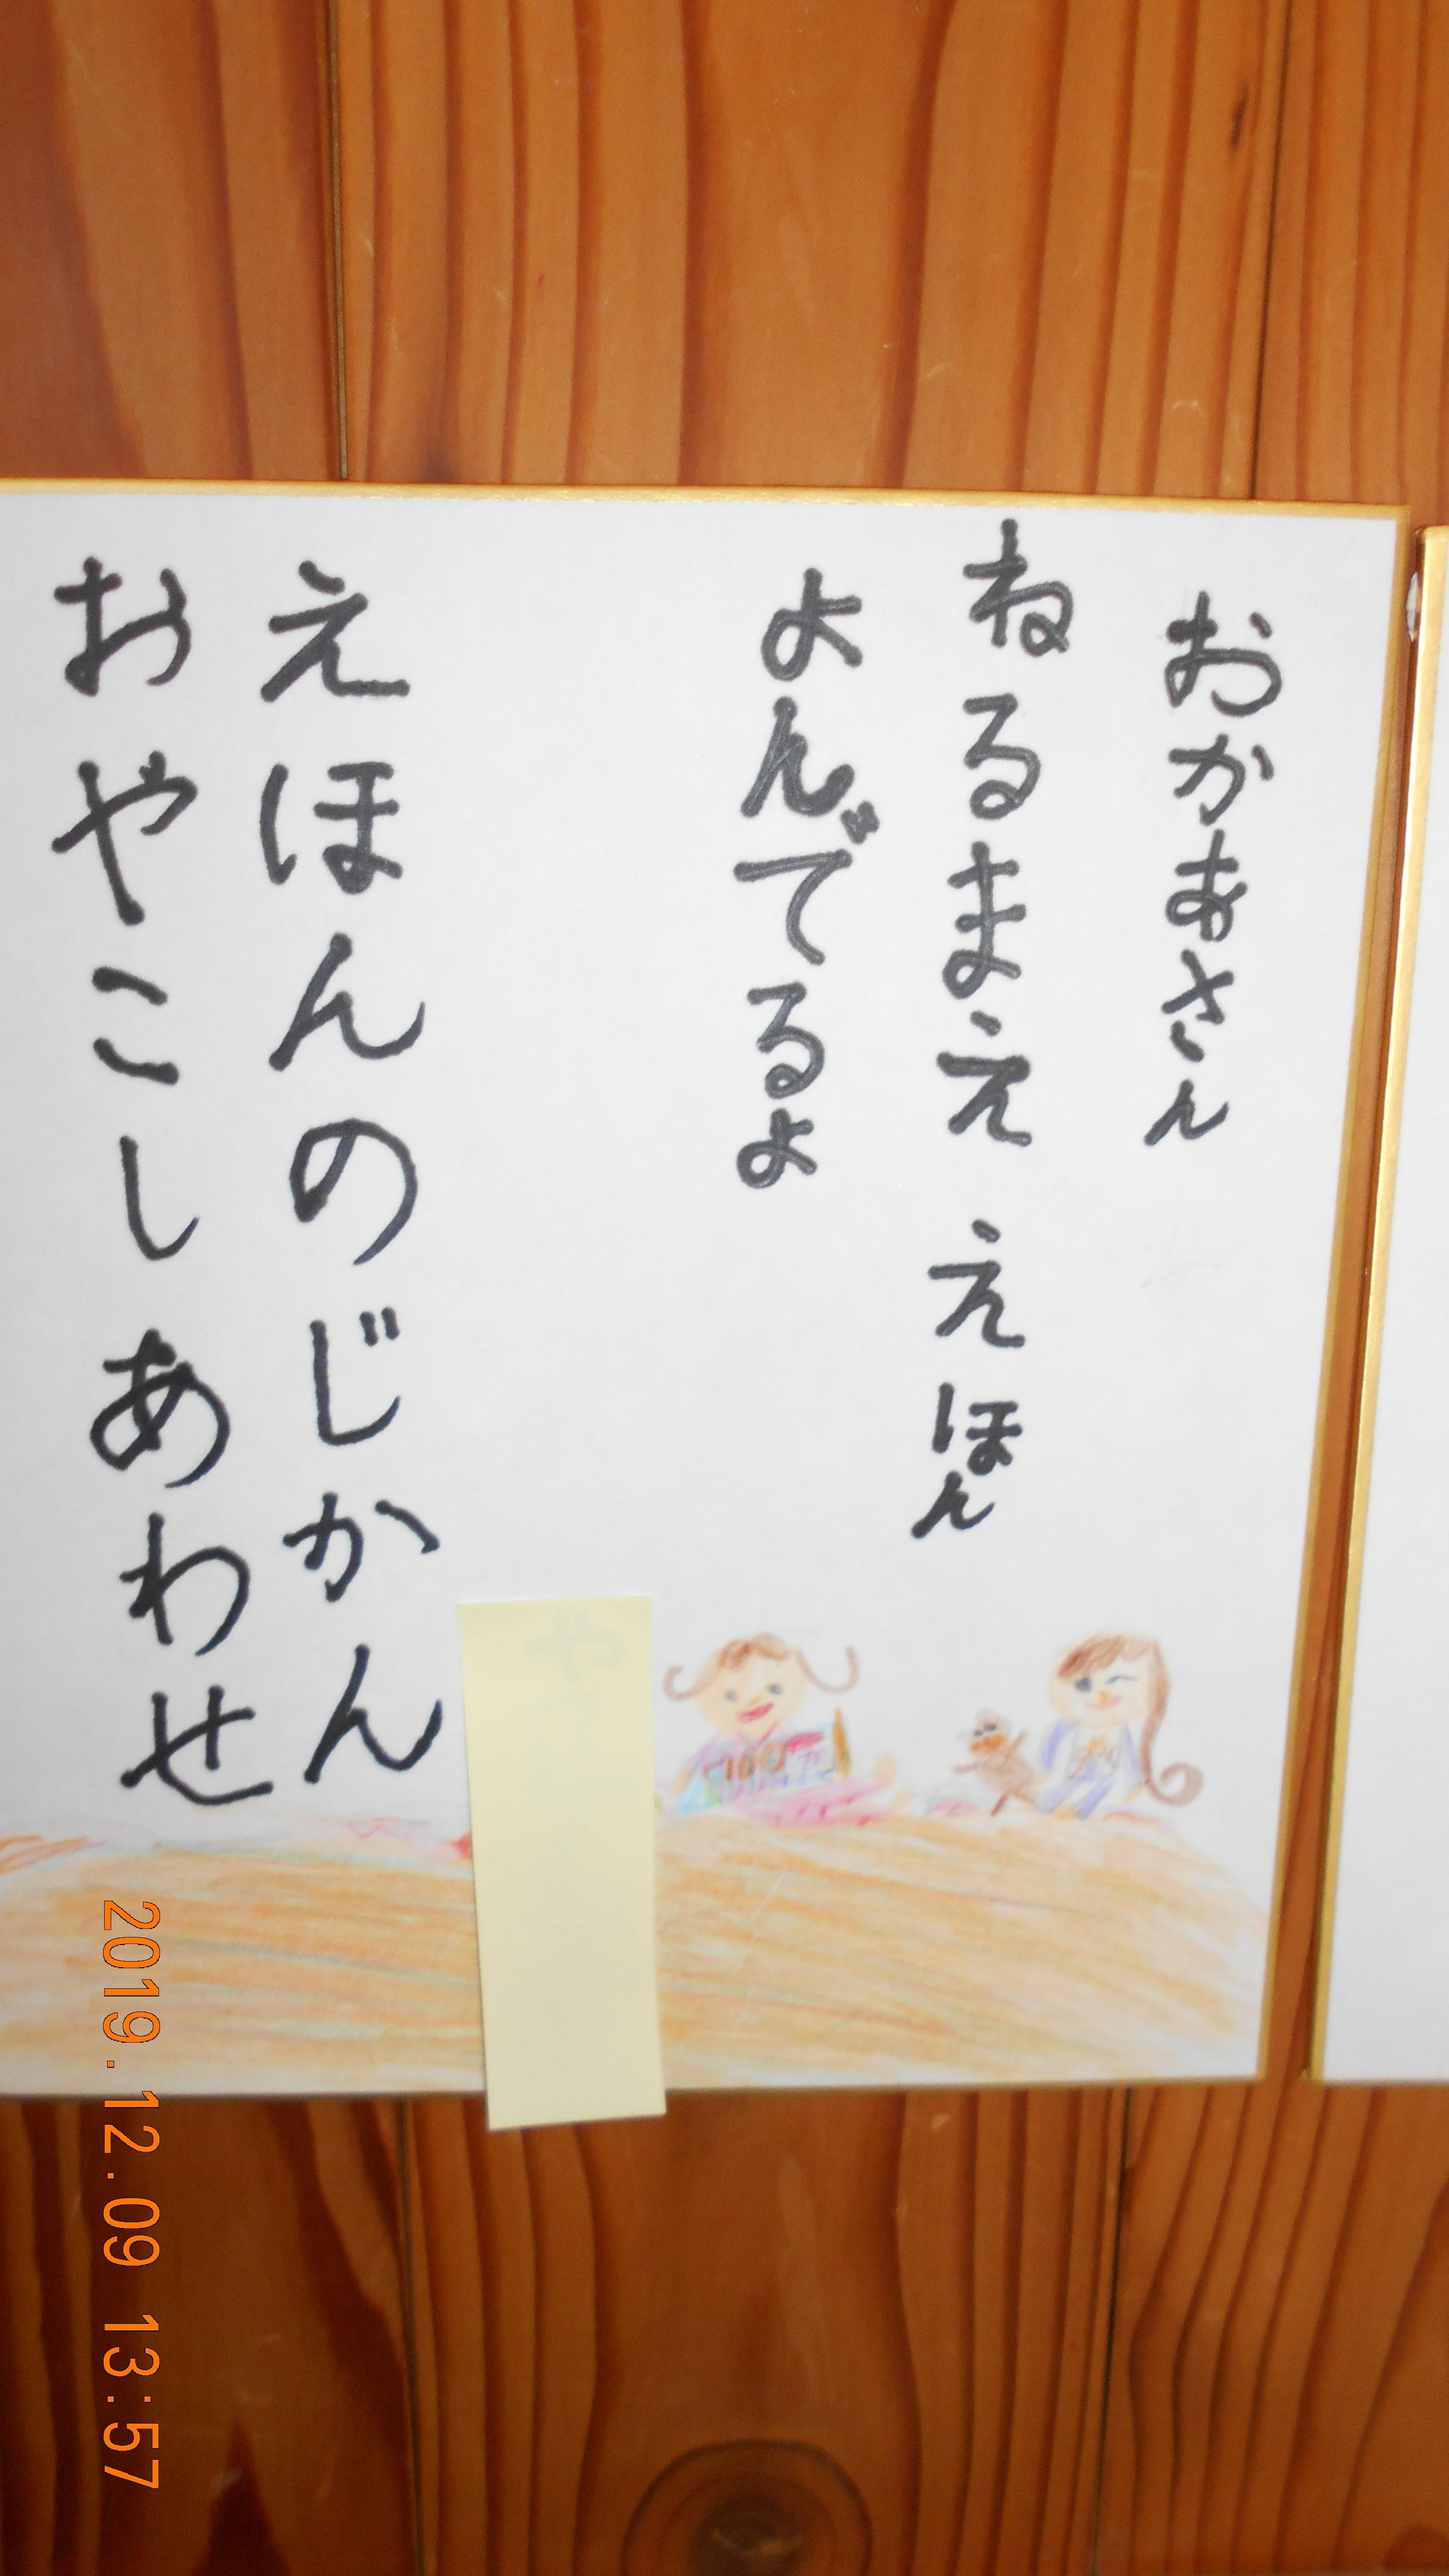 おかあさん
ねるまえ えほん
よんでるよ
えほんのじかん
おやこしあわせ
2019.12.09 13:57